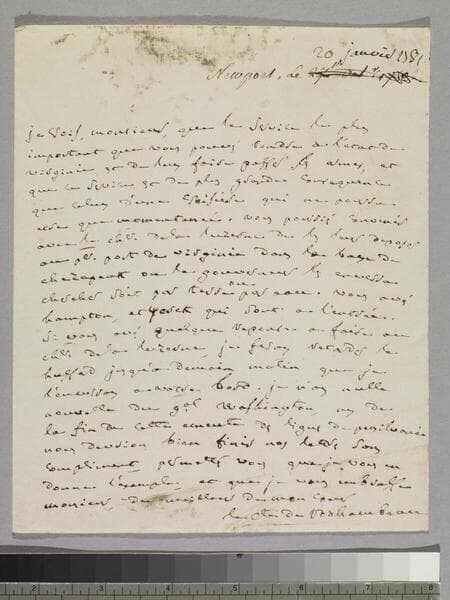 20 janvier 1781
Newport, le
je vois, monsieur, que le service le plus
important que vous pouvez rendre a l'etat de
virginie est de leur faire passer les armes, et
que ce service est de plus grande consequence
que celui d'une croisiere qui ne pourra
etre que momentanée. vous pouvés convenir
avec le ch. de la luzerne de les leur deposer
au 1er port de virginie dans la baye de
chesapeak ou le gouverneur les envoiera
chercher soit par terre ou par eau. vous avés
hampton, et york qui sont a l'entrée.
si vous avés quelque reponse a faire au
ch. de la luzerne, je ferai retarder le
hussard jusqu'a demain matin que je
l'envoie a votre bord. je n'ai nulle
nouvelle du gal Washington ni de
la fin de cette emeute des lignes de pensilvanie
nous devrions bien finir nos lettres sans
compliment permettes vous que je vous en
donne l'exemple et que je vous embrasse
monsieur, du meilleur de mon coeur
le cte de Rochambeau
1 2 3 4 5 6 7 8